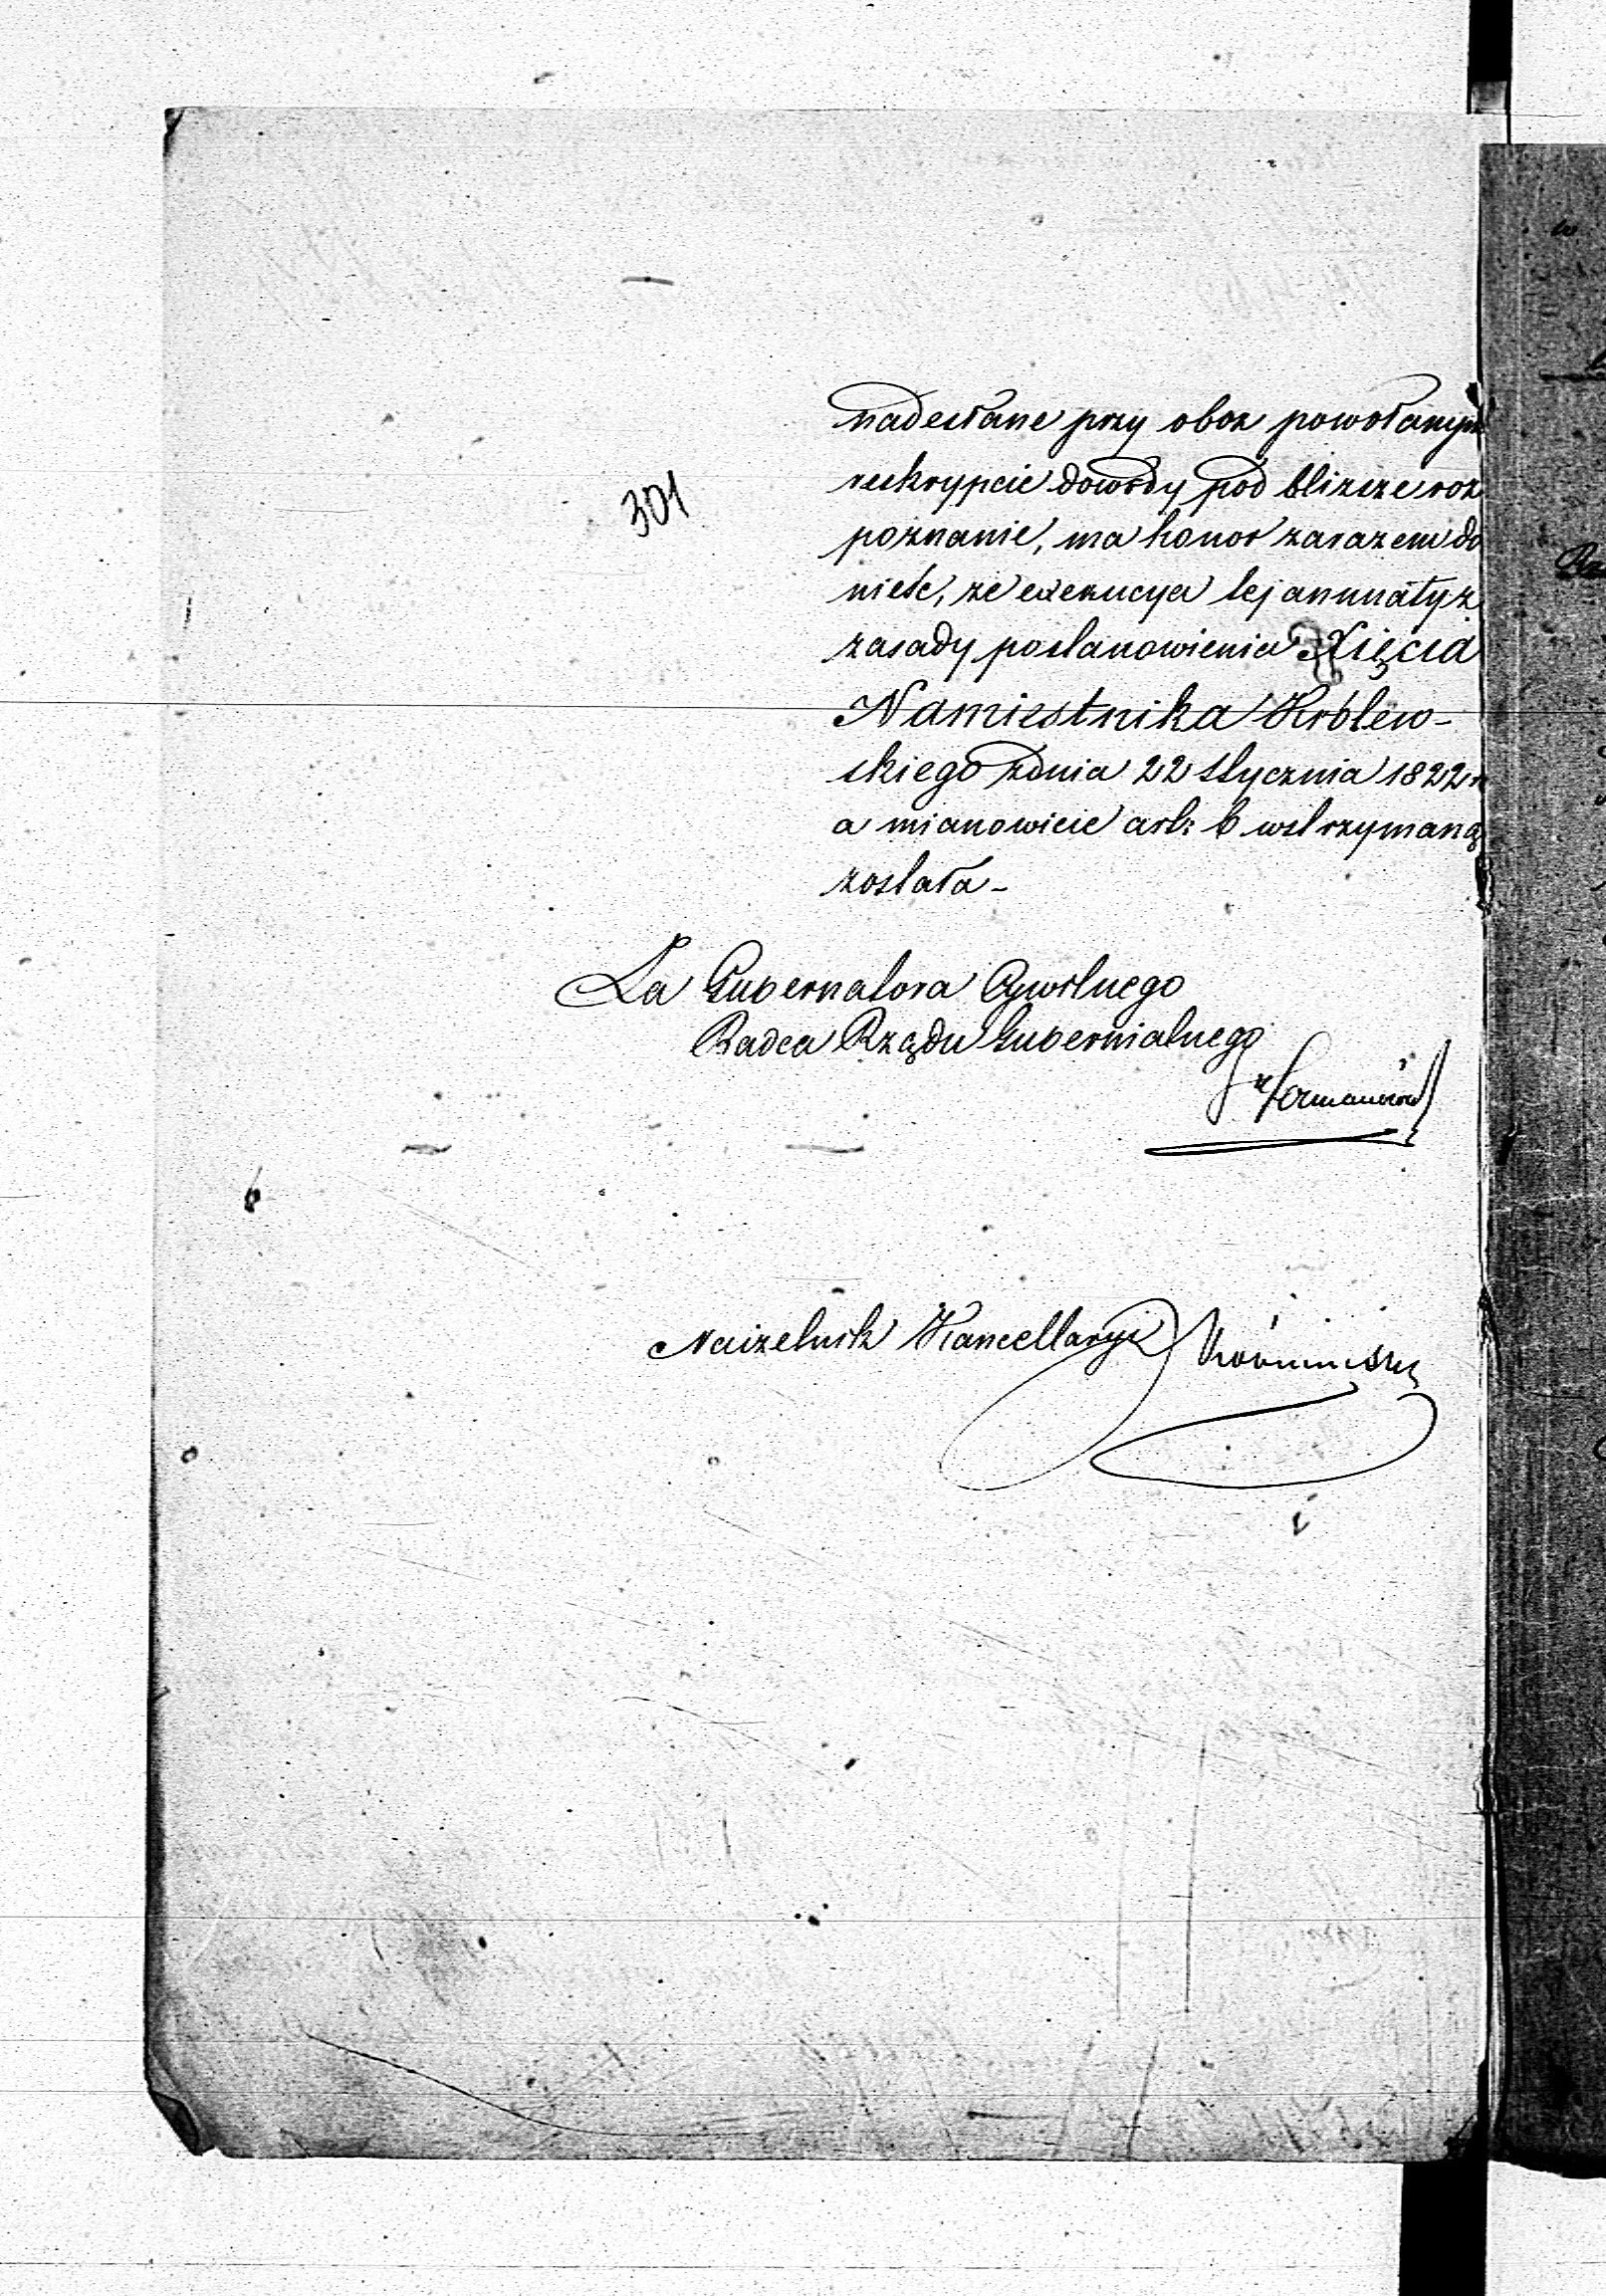 301
nadesłane przy obok powołanym
reskrypcie dowody pod bliższe roz
poznanie, ma honor zarazem do
nieść, że exekucya tej annuaty z
zasady postanowienia Xięcia
Namiestnika Królew-
skiego z dnia 22 Stycznia 1822 r
a mianowicie art: 6 wstrzymaną
została -
Za Gubernatora Cywilnego
Radca Rządu Gubernialnego
Naczelnik Kancellaryi